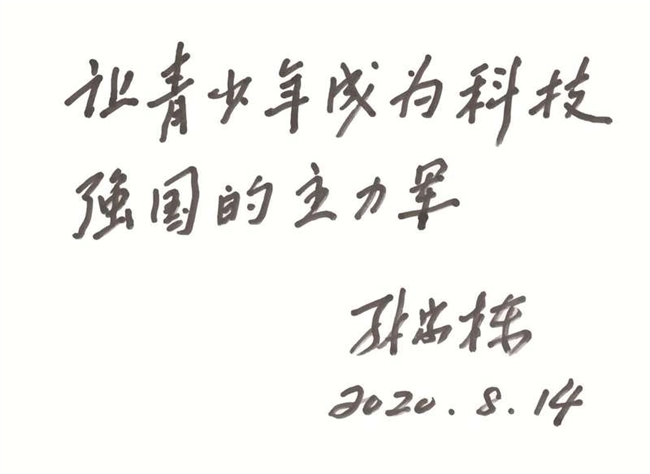 让青少年成为科技
强国的主力军
孙忠栋
2020.8.14